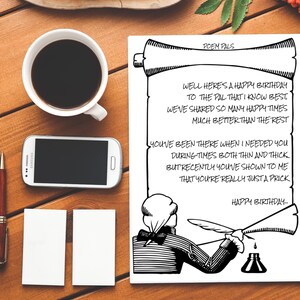 POEM PALS
WELL HERE'S A HAPPY BIRTHDAY
TO THE PAL THAT I KNOW BEST,
WE'VE SHARED SO MANY HAPPY TIMES
MUCH BETTER THAN THE REST
YOU'VE BEEN THERE WHEN I NEEDED YOU
DURING TIMES BOTH THIN AND THICK,
BUT RECENTLY YOU'VE SHOWN TO ME
THAT YOU'RE REALLY JUST A PRICK.
HAPPY BIRTHDAY...